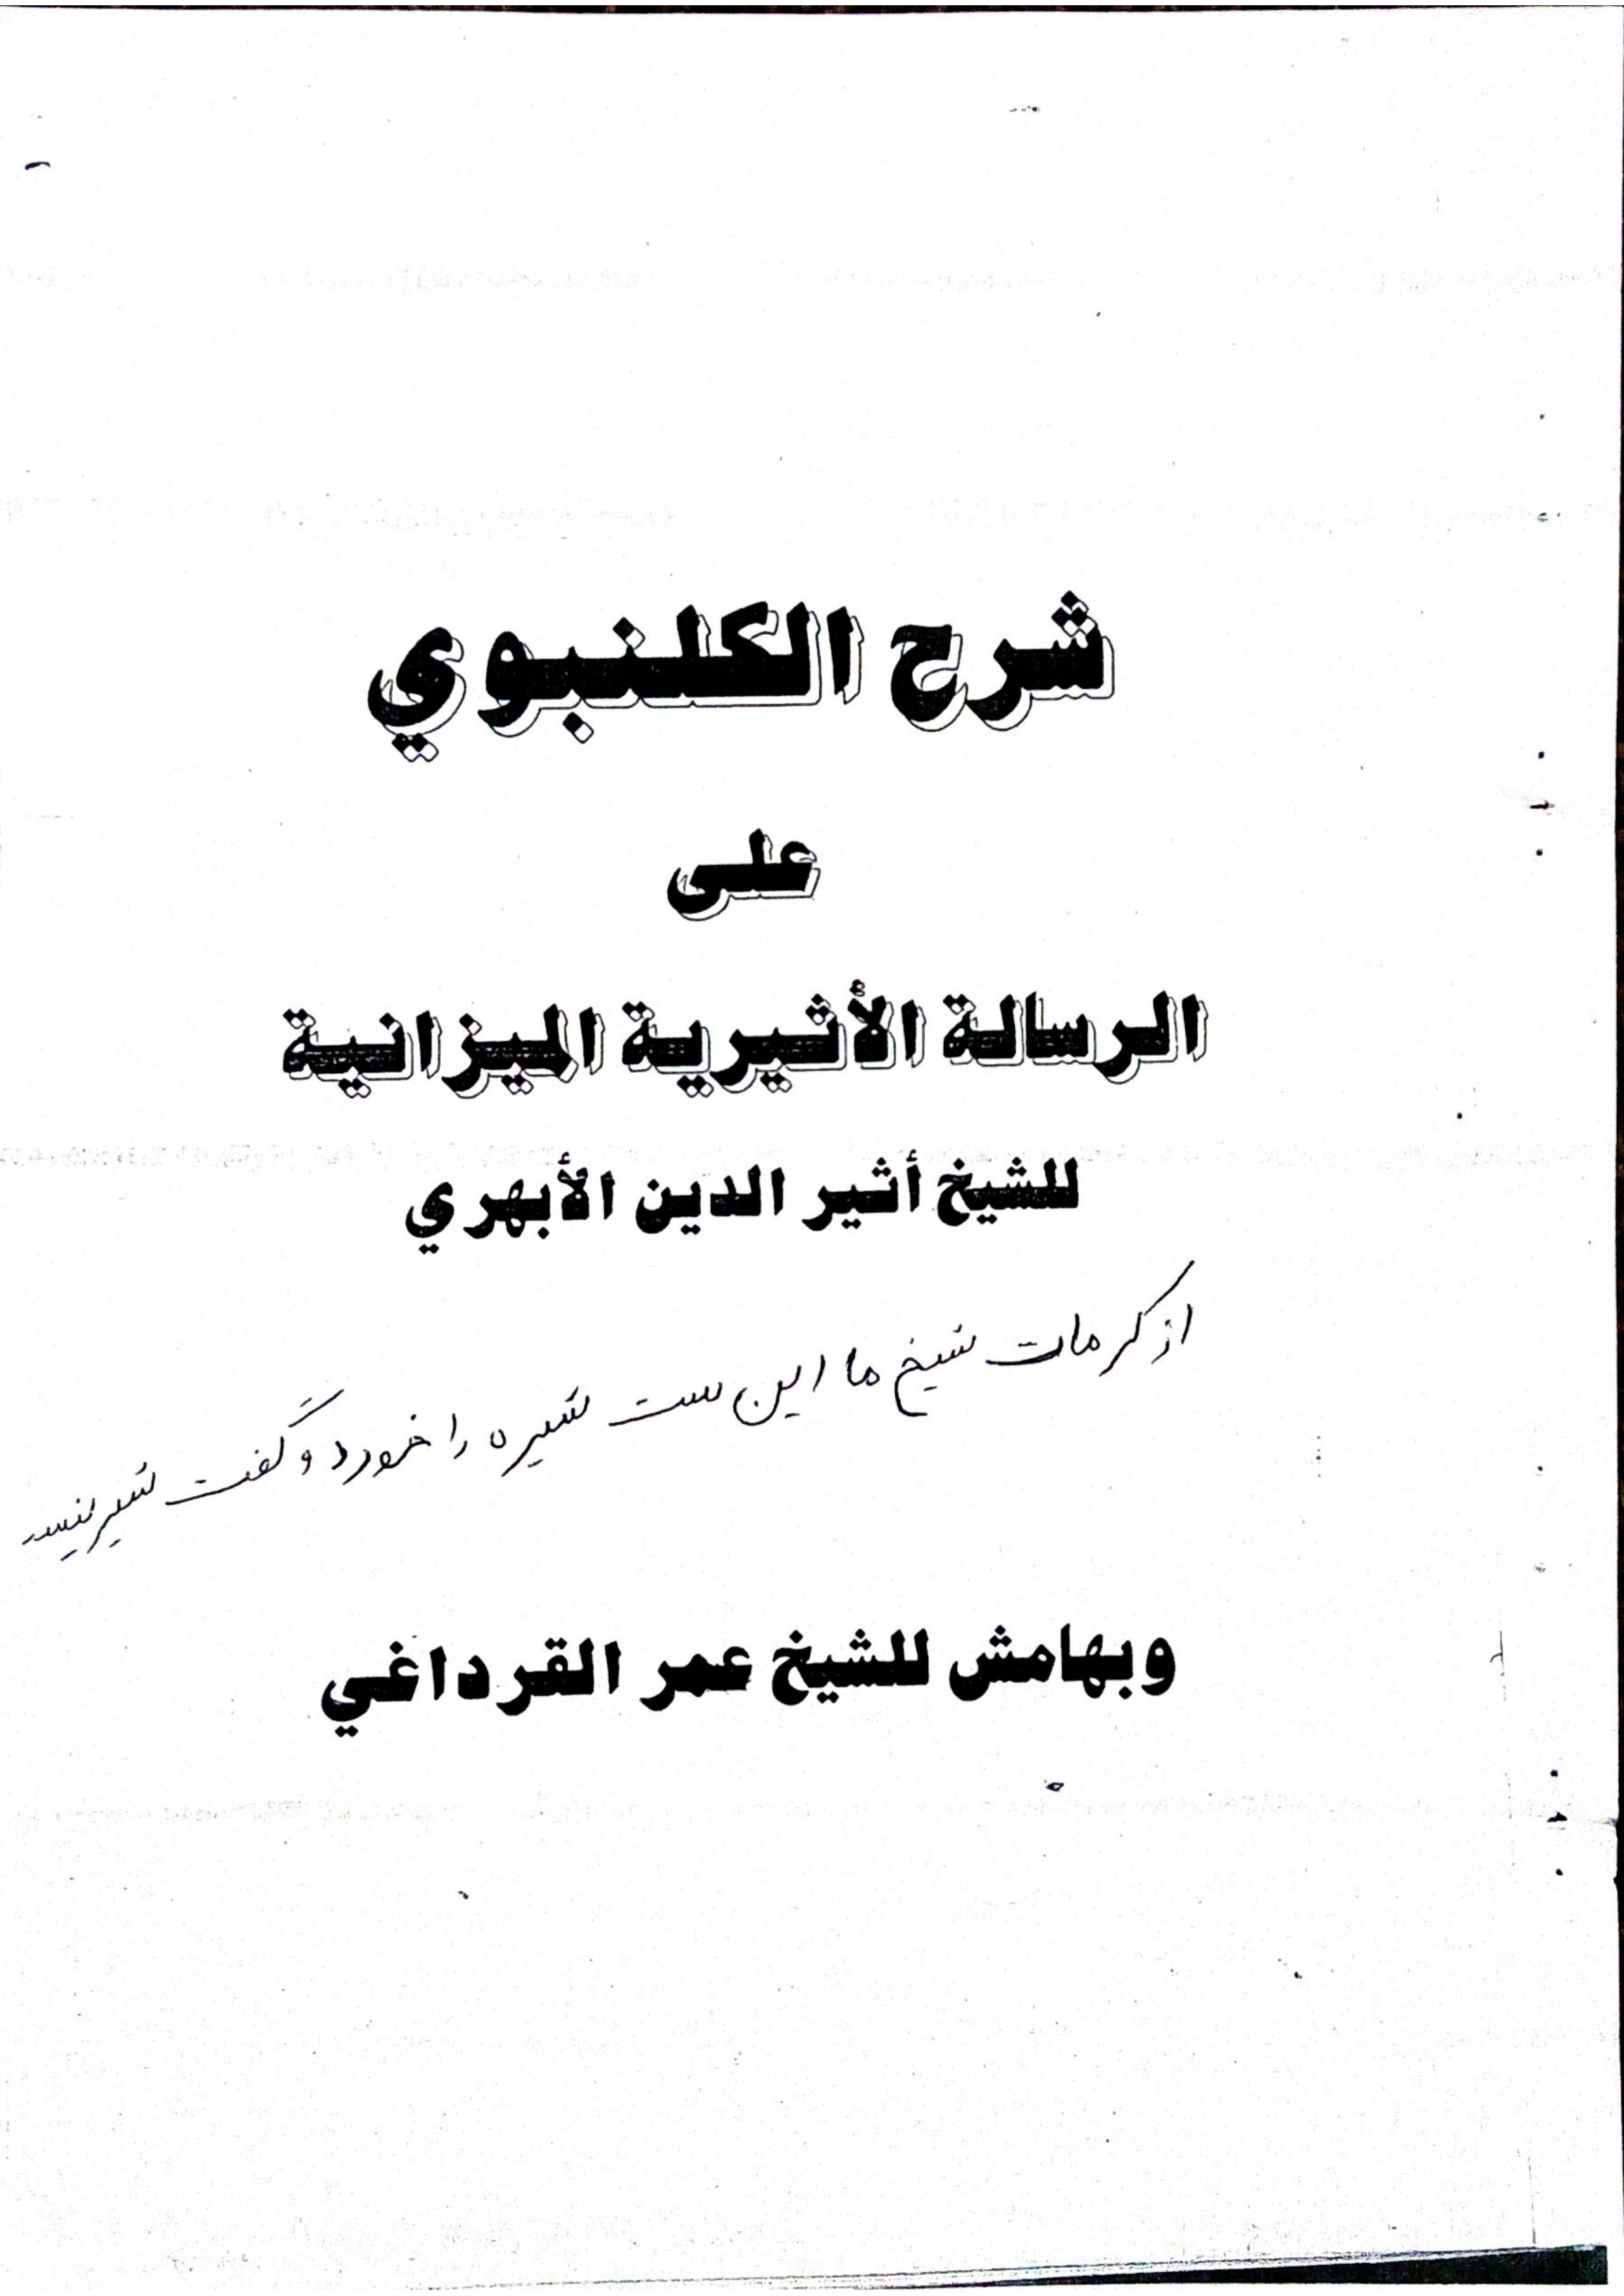 شرح الكلنبوي
على
الرسالة الأثيرية الميزانية
للشيخ أثير الدين الأبهري
از كرمات شیخ ما این ست شیره را خورد و گفت شیرینس
وبهامش للشيخ عمر القرداغي